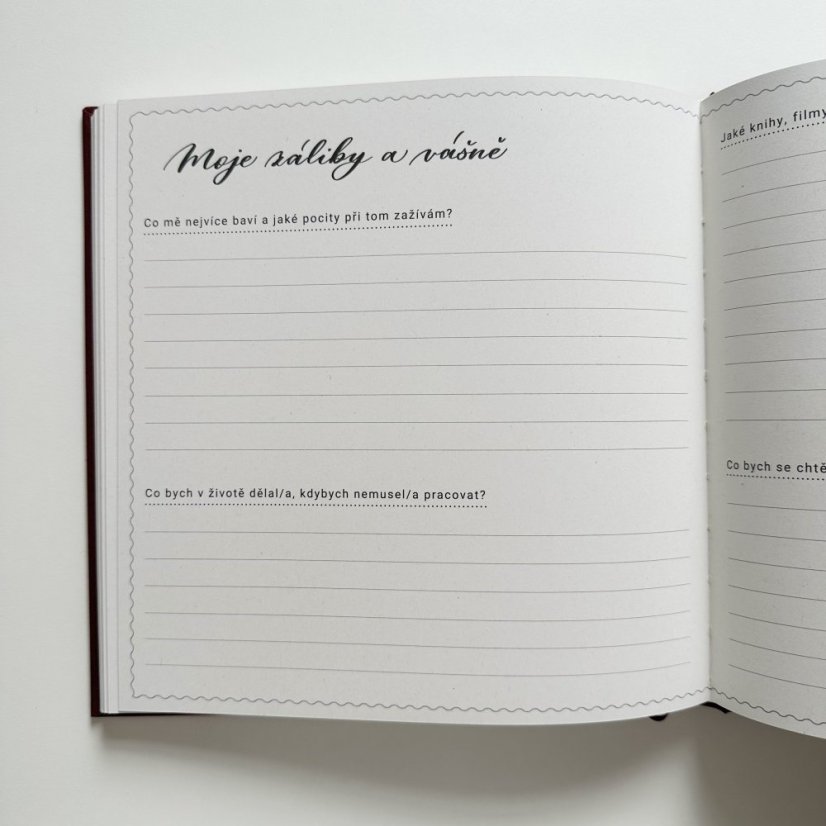 Moje záliby a vášně
Co mě nejvíce baví a jaké pocity při tom zažívám?
Co bych v životě dělal/a, kdybych nemusel/a pracovat?
Jaké knihy, filmy
Co bych se chtě